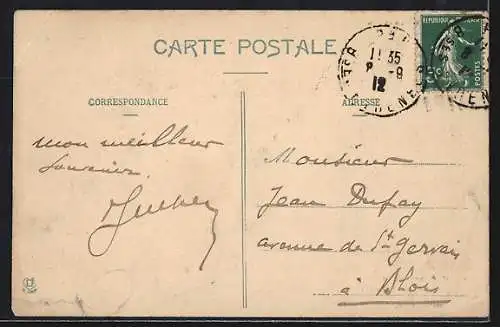 CARTE POSTALE
CORRESPONDANCE
ADRESSE
11 35
12
REPUBLIQUE
mon meilleur
souvenir.
Monsieur
Jean Dufay
avenue de St Gervais
à Blois